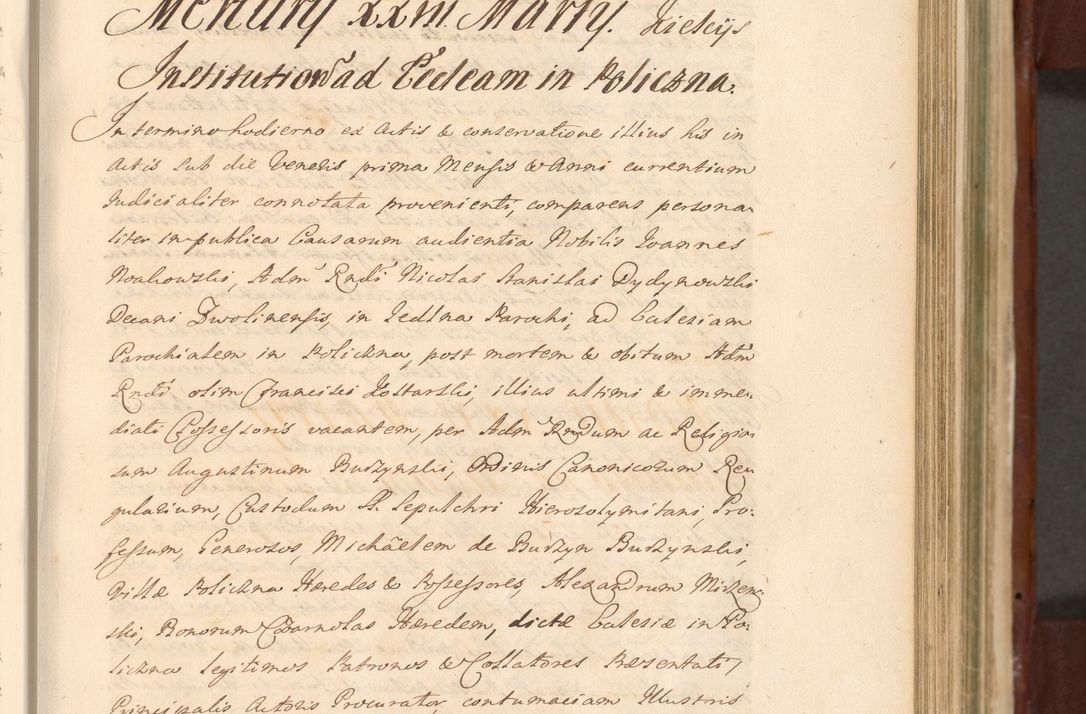 Mercury XXIII Marty.
Institution ad Eccleam in Policzna.
In termino hodierno ex Actis & conservatione illius his in
Actis sub die Veneris prima Mensis & Anni currentium
Judicialiter connotata provenienti, comparens persona-
liter in publica Causarum audientia Nobilis Joannes
Noakowski, Adm Rndi Nicolai Stanislai Dydynowski
Decani Zwolinensis, in Jedlna Parochi, ad Ecclesiam
Parochialem in Policzna, post mortem & obitum Adm
Rndi olim Francisci Kostarski, illius ultimi & imme-
diati Possessoris vacantem, per Adm Rndum ac Religio-
sum Augustinum Burzynski, Ordinis Canonicorum Re-
gularium, Custodum S. Sepulchri Hierosolymitani, Pro-
fessum, Generosos, Michaelem de Burzyn Burzynski,
Villæ Policzna Hæredes & Possessores, Alexandrum
ski, Bonorum Czarnolas Hæredem, dictæ Ecclesiæ in Po-
liczna legitimos Patronos & Collatores Præsentati,
Principalis Actoris Procurator, contumaciam Illustris